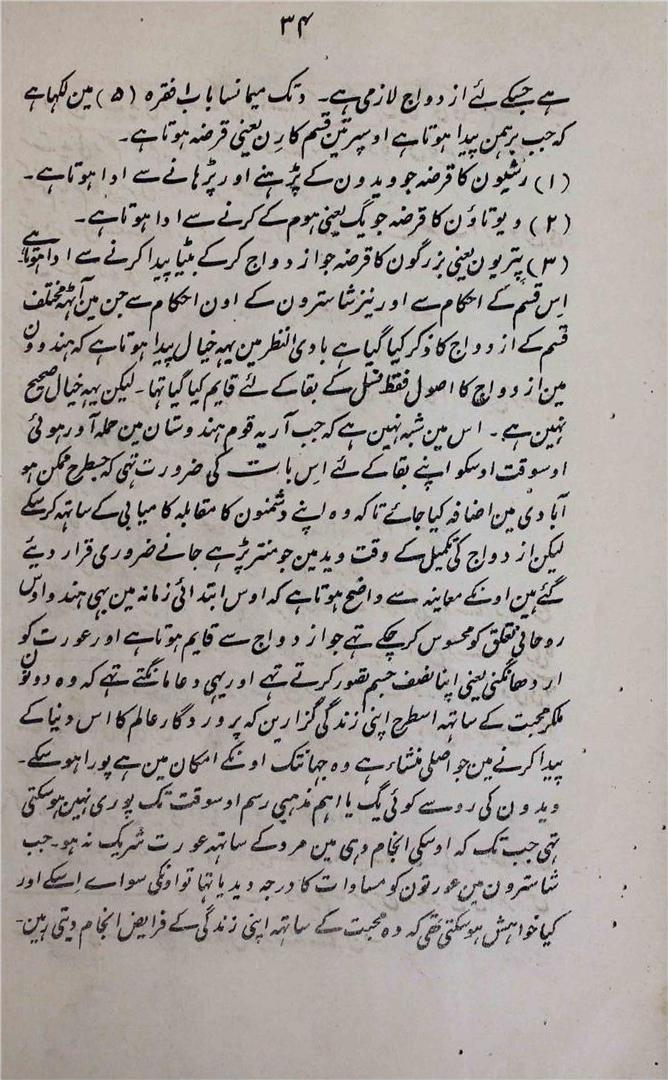 ۳۴
ہے جسکے لئے ازدواج لازمی ہے۔ دتک میمانسا باب ا فقرہ (۵) مین لکہا ہے
کہ جب برہمن پیدا ہوتا ہے اوسپر تین قسم کا رِن یعنی قرضہ ہوتا ہے۔
(۱) رشیون کا قرضہ جو ویدون کے پڑہنے اور پڑہانے سے ادا ہوتا ہے۔
(۲) دیوتاؤن کا قرضہ جو یگ یعنی ہوم کے کرنے سے ادا ہوتا ہے۔
(۳) پتریون یعنی بزرگون کا قرضہ جو ازدواج کرکے بیٹا پیدا کرنے سے ادا ہوتا ہے
اِس قسم کے احکام سے اور نیز شاسترون کے اون احکام سے جن مین آٹہہ مختلف
قسم کے ازدواج کا ذکر کیا گیا ہے بادی النظر مین یہہ خیال پیدا ہوتا ہے کہ ہندوون
مین ازدواج کا اصول فقط نسل کے بقا کے لئے قایم کیا گیا تہا۔ لیکن یہہ خیال صحیح
نہین ہے۔ اس مین شبہ نہین ہے کہ جب آریہ قوم ہندوستان مین حملہ آور ہوئی
اوسوقت اوسکو اپنے بقا کے لئے اِس بات کی ضرورت تہی کہ جسطرح ممکن ہو
آبادی مین اضافہ کیا جائے تاکہ وہ اپنے دشمنون کا مقابلہ کامیابی کے ساتہہ کرسکے
لیکن ازدواج کی تکمیل کے وقت وید مین جو منتر پڑہے جانے ضروری قرار دیئے
گئے ہین اونکے معاینہ سے واضح ہوتا ہے کہ اوس ابتدائی زمانہ مین بہی ہندو اوس
روحانی تعلق کو محسوس کرچکے تہے جو ازدواج سے قایم ہوتا ہے اور عورت کو
اردھانگنی یعنی اپنا نصف جسم تصور کرتے تہے اور یہی دعا مانگتے تہے کہ وہ دونون
ملکر محبت کے ساتہہ اسطرح اپنی زندگی گزارین کہ پروردگار عالم کا اس دنیا کے
پیدا کرنے مین جو اصلی منشاء ہے وہ جہانتک اونکے امکان مین ہے پورا ہوسکے۔
ویدون کی رو سے کوئی یگ یا اہم مذہبی رسم اوسوقت تک پوری نہین ہوسکتی
تہی جب تک کہ اوسکی انجام دہی مین مرد کے ساتہہ عورت شریک نہ ہو۔ جب
شاسترون مین عورتون کو مساوات کا درجہ دیدیا تہا تو اونکی سواے اِسکے اور
کیا خواہش ہوسکتی تھی کہ وہ محبت کے ساتہہ اپنی زندگی کے فرایض انجام دیتی رہین۔